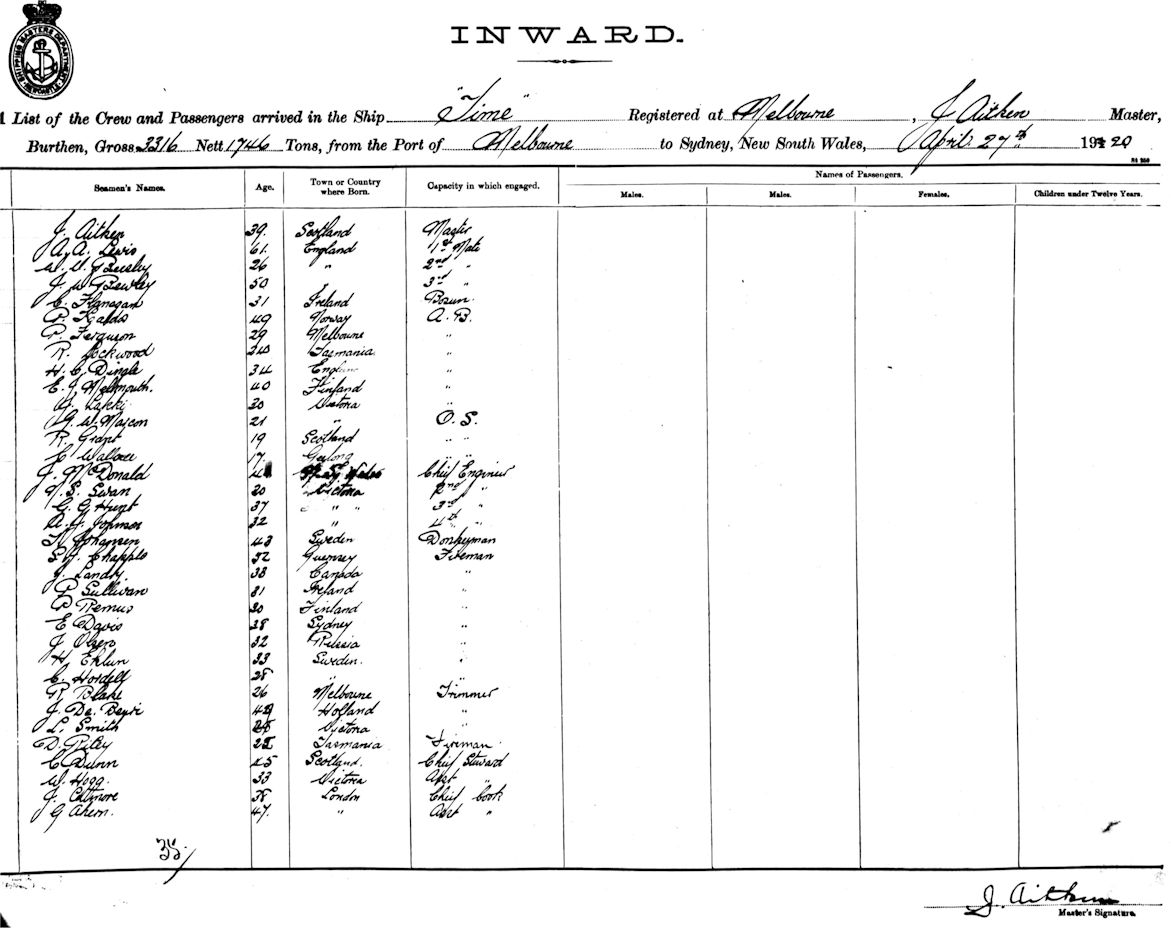 SHIPPING MASTERS DEPARTMENT NEWCASTLE
INWARD.
A List of the Crew and Passengers arrived in the Ship "Time" Registered at Melbourne, J Aitken Master,
Burthen, Gross 3316 Nett 1746 Tons, from the Port of Melbourne to Sydney, New South Wales, April 27th 1920
Seamen's Names. Age. Town or Country where Born. Capacity in which engaged. Names of Passengers.
Males. Males. Females. Children under Twelve Years.
J. Aitken 39. Scotland Master
A. A. Lewis 61. England 1st Mate
26 " 2nd "
J. W. 50 3rd "
C. Flanagan 31 Ireland Bosun.
49 Norway A.B.
P. Ferguson 29 Melbourne "
R. Lockwood Tasmania "
H. C. Dingle 34 England "
E. J. 40 Finland "
20 Victoria "
G. W. Mascon 21 " O.S.
R. Grant 19 Scotland " "
Wallace 17. Geelong " "
J. McDonald Chief Engineer
S. Swan 30 Victoria 2nd "
G. G. Hunt 37 " " 3rd "
A. J. Johnson 32 " 4th "
Johansen 43 Sweden Donkeyman
S. J. Chapple 52 Guernsey Fireman
J. Landry 38 Canada "
P Sullivan 31 Ireland "
P Remus 30 Finland "
E Davis 38 Sydney "
J. Olsen 32 Russia "
H. Eklun 33 Sweden. "
C. 28 "
R Blake 26 Melbourne Trimmer
J. De. Holland "
L. Smith Victoria "
D. Riley Tasmania Fireman
C Dunn 45 Scotland. Chief Steward
W. Hogg. 33 Victoria Asst "
J. 38 London Chief Cook
G Ahern. 47. " Asst "
35.
J. Aitken
Master's Signature.